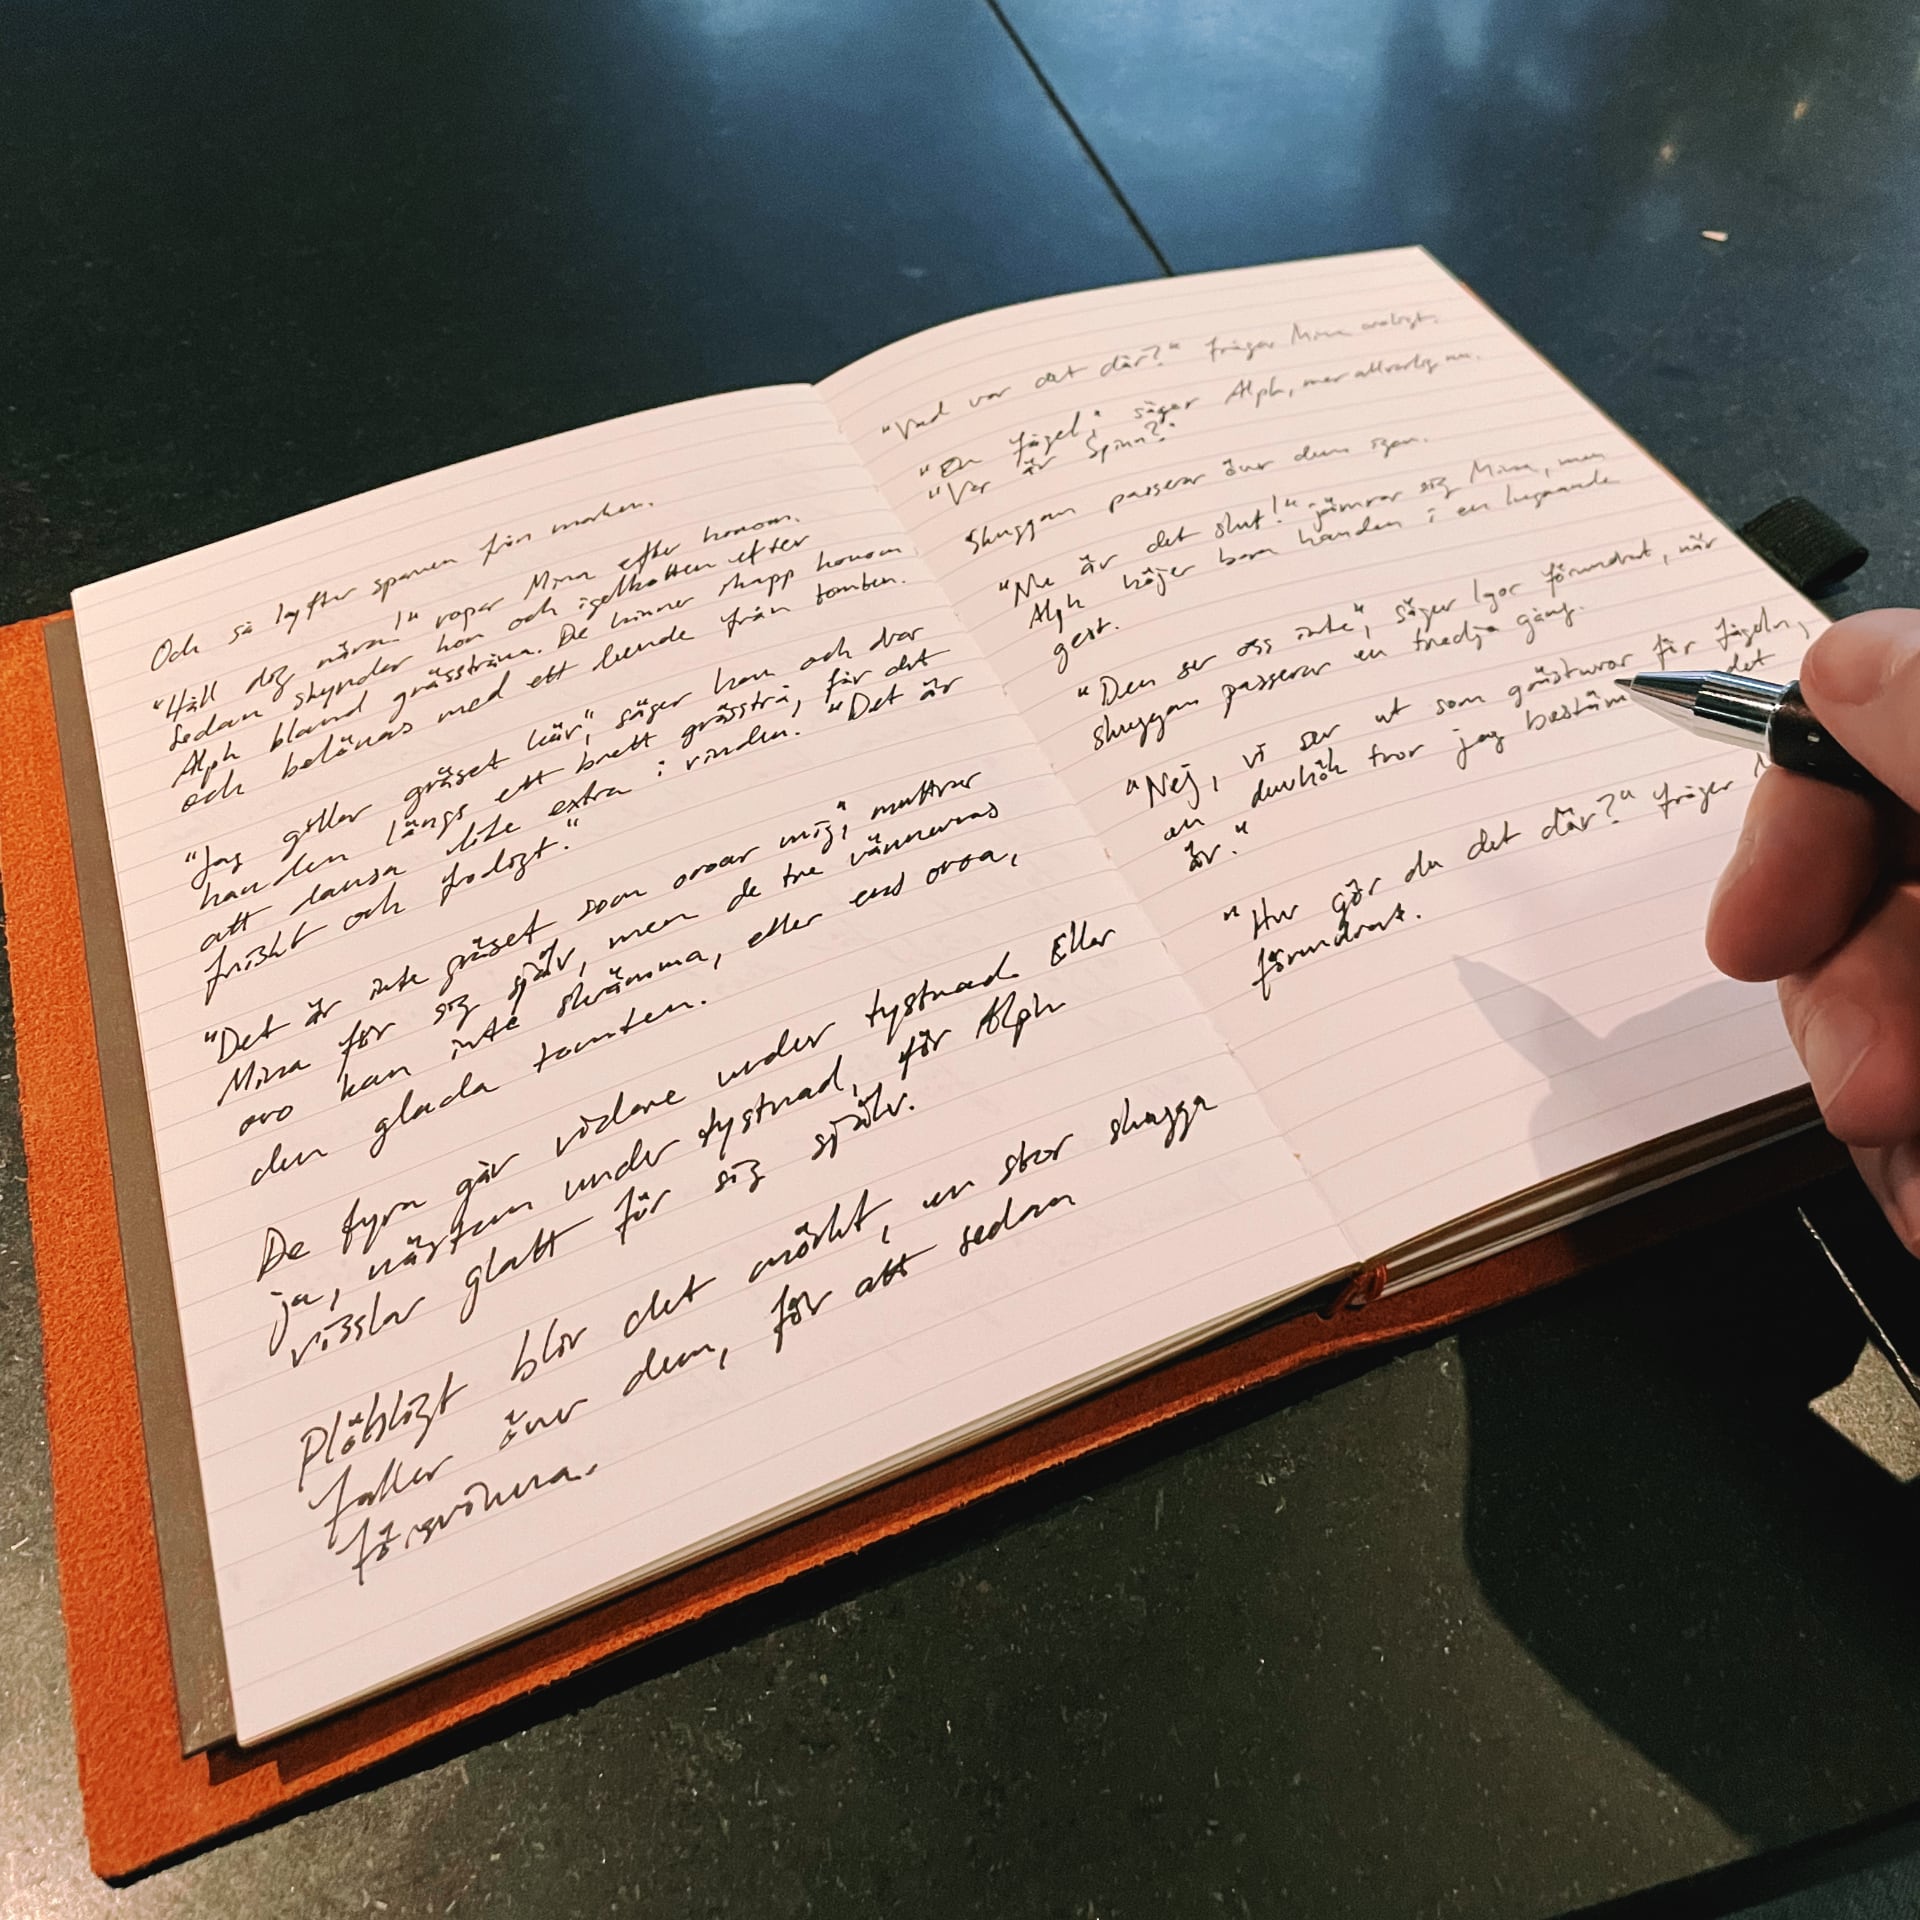 Och så lyfter spanen från marken.
"Håll dig nära!" ropar Mina efter honom.
Sedan skyndar hon och igelkotten efter
Alph bland grässtråna. De hinner ikapp honom
och belönas med ett leende från tomten.
"Jag gillar gräset här," säger han och drar
handen längs ett brett grässtrå, får det
att dansa lite extra i vinden. "Det är
friskt och frodigt."
"Det är inte gräset som oroar mig," muttrar
Mina för sig själv, men de tre vännernas
oro kan inte skrämma, eller ens oroa,
den glada tomten.
De fyra går vidare under tystnad. Eller
ja, nästan under tystnad, för Alph
visslar glatt för sig själv.
Plötsligt blir det mörkt, en stor skugga
faller över dem, för att sedan
försvinna.
"Vad var det där?" frågar Mina oroligt.
"En fågel," säger Alph, mer allvarlig nu.
"Var är Spinn?"
Skuggan passerar över dem igen.
"Nu är det slut!" jämrar sig Mina, men
Alph höjer bara handen i en lugnande
gest.
"Den ser oss inte", säger Igor förundrat, när
skuggan passerar en tredje gång.
"Nej, vi ser ut som grästuvor för fågeln,
en duvhök tror jag bestäm det
är."
"Hur gör du det där?" frågar
förundrat.